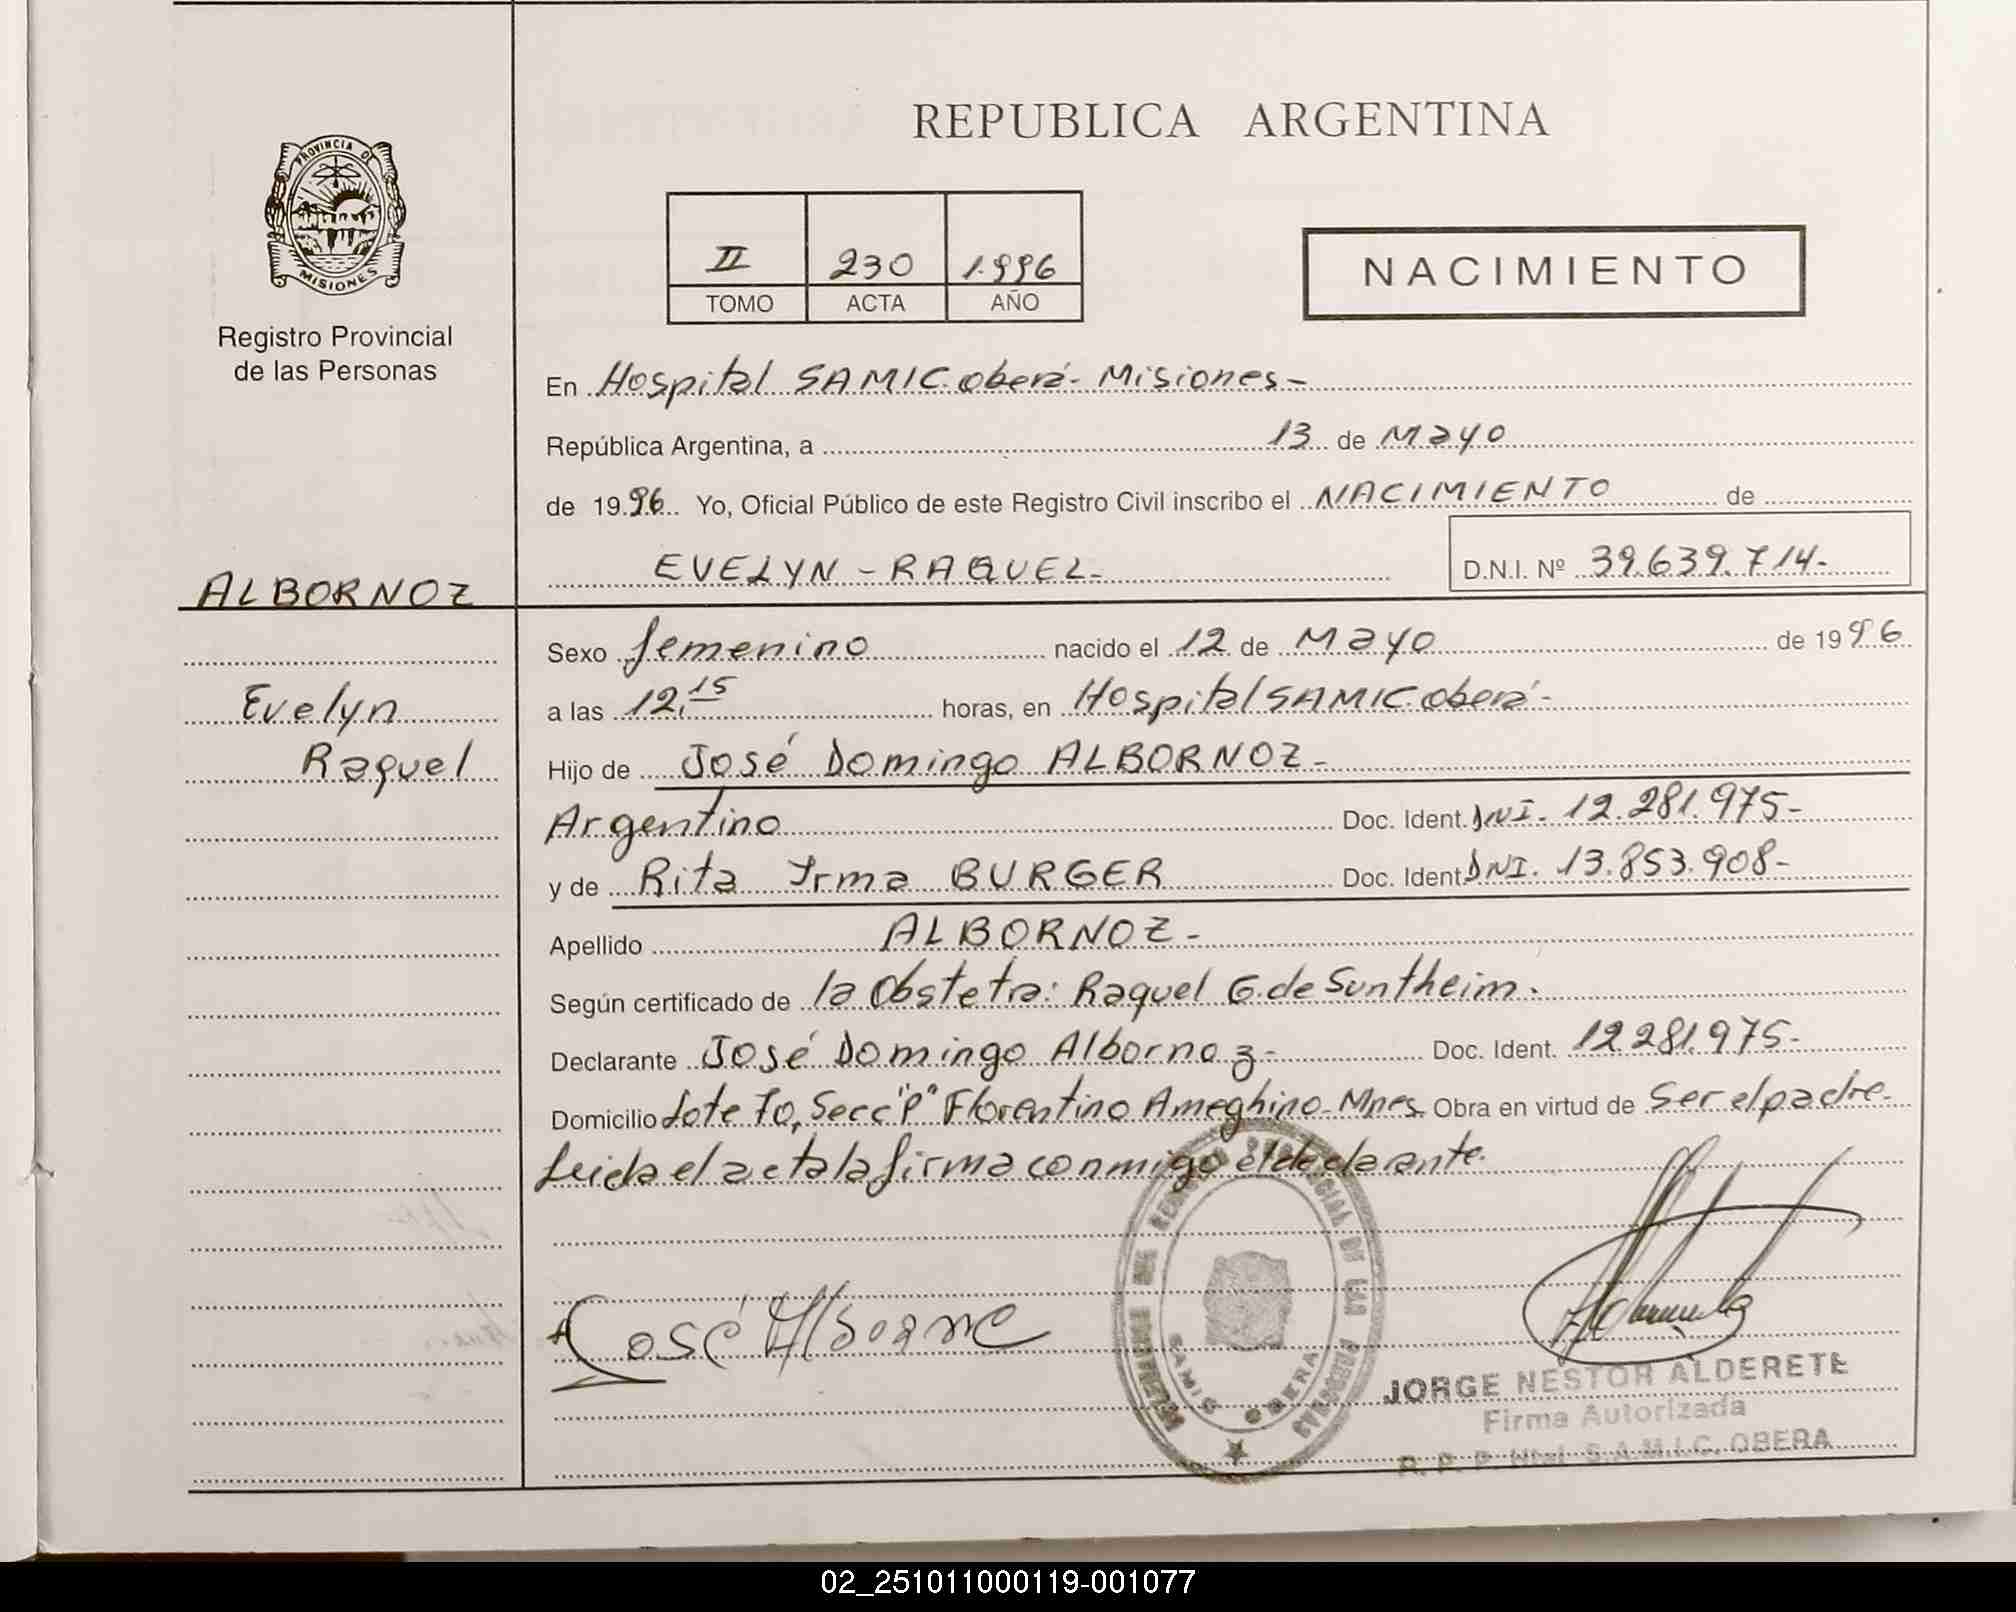 REPUBLICA ARGENTINA
PROVINCIA DE
MISIONES
Registro Provincial
de las Personas
II 230 1.996
TOMO ACTA AÑO
NACIMIENTO
En Hospital SAMIC. oberá- Misiones-
República Argentina, a 13 de Mayo
de 1996 Yo, Oficial Público de este Registro Civil inscribo el NACIMIENTO de
EVELYN - RAQUEL- D.N.I. Nº 39.639.714-
ALBORNOZ
Evelyn
Raquel
Sexo femenino nacido el 12 de Mayo de 1996
a las 12,15 horas, en Hospital SAMIC. oberá-
Hijo de José Domingo ALBORNOZ-
Argentino Doc. Ident. DNI. 12.281.975-
y de Rita Yrma BURGER Doc. Ident DNI. 13.853.908-
Apellido ALBORNOZ-
Según certificado de la Obstetra: Raquel G. de Suntheim.
Declarante José Domingo Albornoz- Doc. Ident. 12.281.975-
Domicilio Lote 70, Secc "P" Florentino Ameghino- Mnes. Obra en virtud de Ser el padre-
Leida el acta la firma conmigo el declarante.
José Alborne
SAMIC OBERA
JORGE NESTOR ALDERETE
Firma Autorizada
R. P. P. Htal S.A.M.I.C. OBERA
02_251011000119-001077